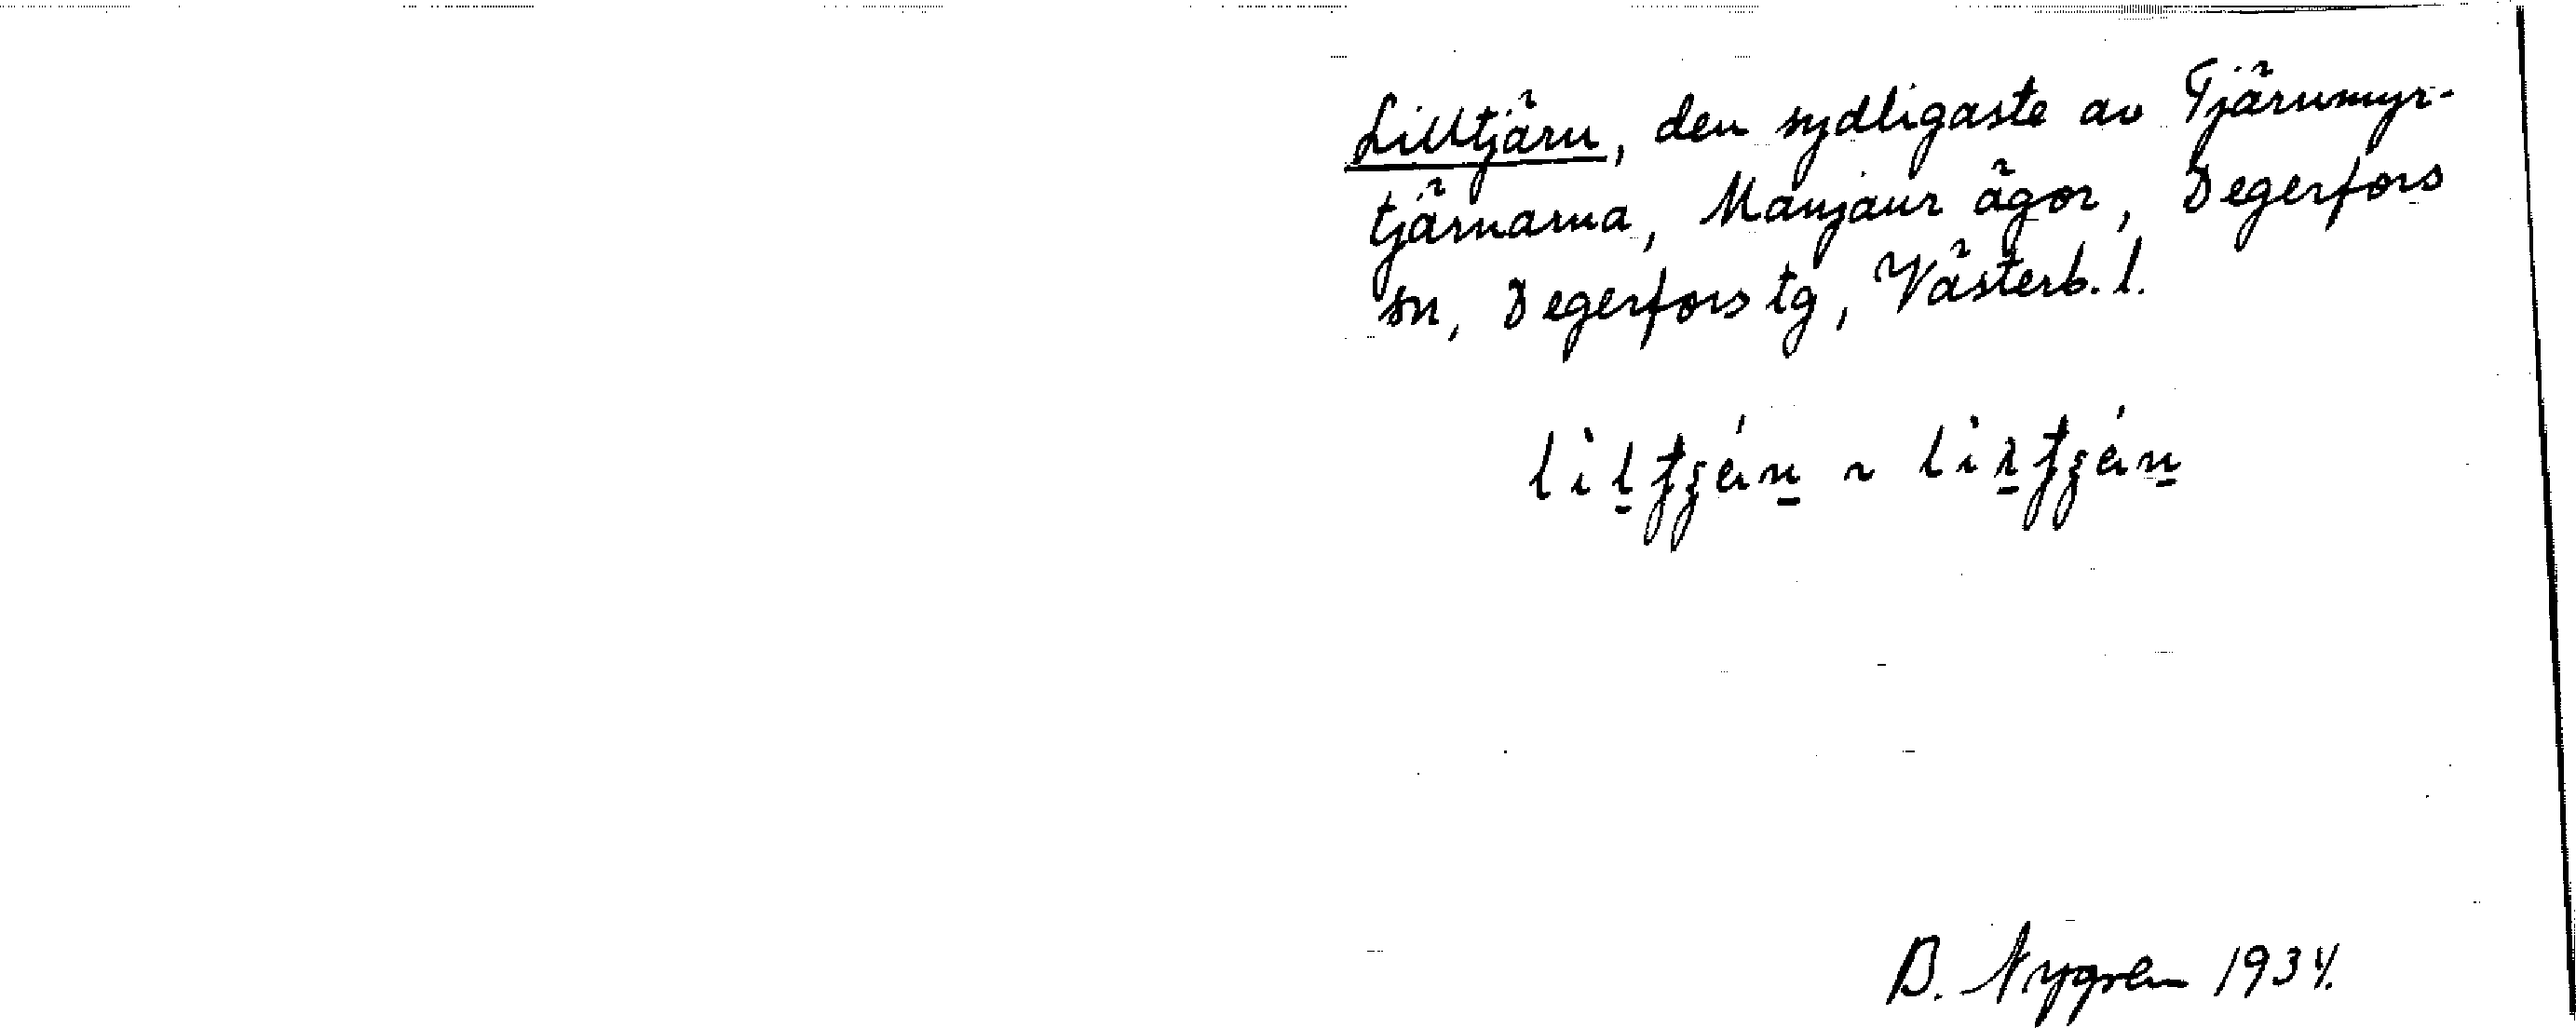 Lilltjärn, den sydligaste av Tjärnmyr-
tjärnarna, Manjaur ägor, Degerfors
sn, Degerfors tg, Västerb. l.
B. Nygren 1934.